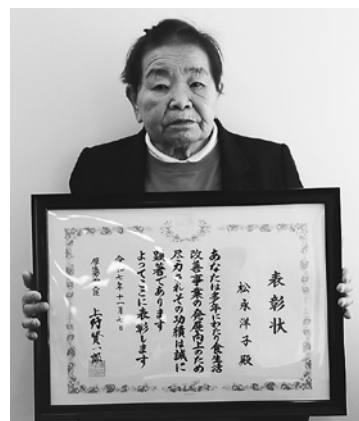 表彰状
松永洋子 殿
あなたは多年にわたり食生活
改善事業の発展向上のため
尽力されその功績は誠に
顕著であります
よってここに表彰します
令和七年十一月 日
厚生労働大臣 上野賢一郎